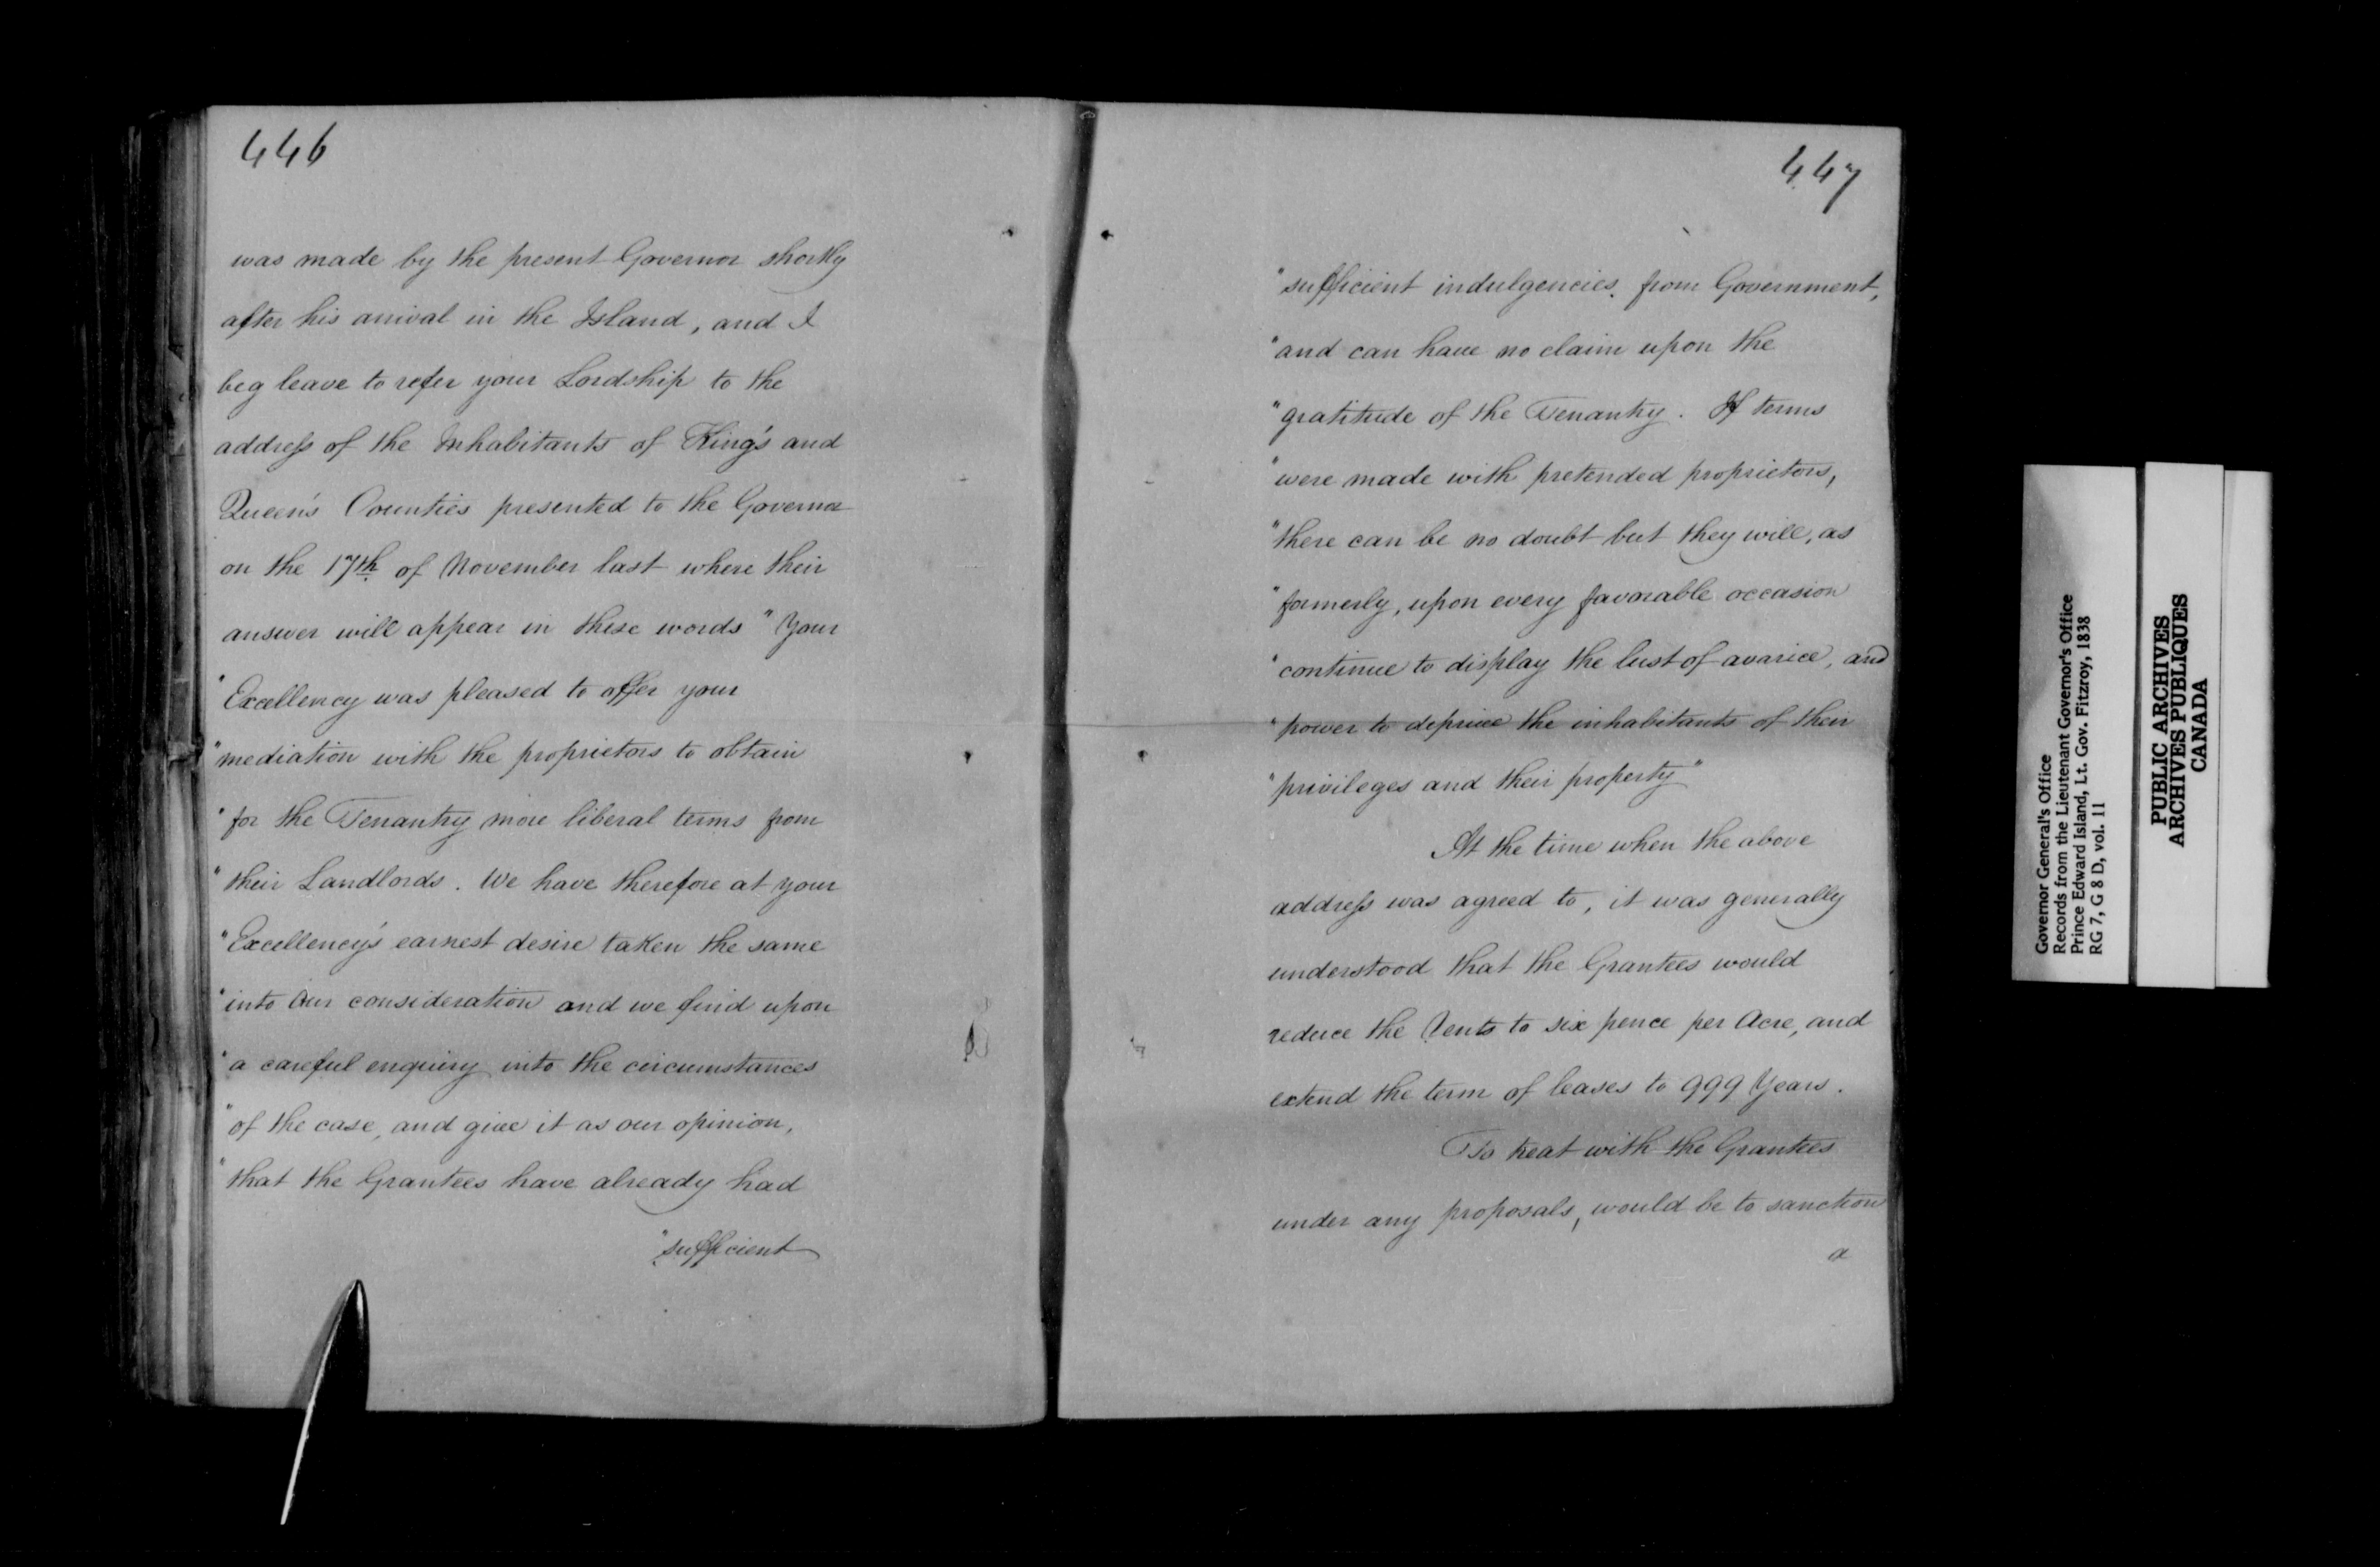 446
was made by the present Governor shortly
after his arrival in the Island, and I
beg leave to refer your Lordship to the
address of the Inhabitants of King's and
Queen's Counties presented to the Governor
on the 17th of November last where their
answer will appear in these words "Your
"Excellency was pleased to offer your
"mediation with the proprietors to obtain
"for the Tenantry more liberal terms from
"their Landlords. We have therefore at your
"Excellency's earnest desire taken the same
"into our consideration and we find upon
"a careful enquiry into the circumstances
"of the case, and give it as our opinion,
"that the Grantees have already had
"sufficient
447
"sufficient indulgencies from Government,
"and can have no claim upon the
"gratitude of the Tenantry. If terms
"were made with pretended proprietors,
"there can be no doubt but they will, as
"formerly, upon every favorable occasion
"continue to display the lust of avarice, and
"power to deprive the inhabitants of their
"privileges and their property"
At the time when the above
address was agreed to, it was generally
understood that the Grantees would
reduce the Rents to six pence per Acre, and
extend the term of leases to 999 Years.
To treat with the Grantees
under any proposals, would be to sanction
a
Governor General's Office
Records from the Lieutenant Governor's Office
Prince Edward Island, Lt. Gov. Fitzroy, 1838
RG 7, G 8 D, vol. 11
PUBLIC ARCHIVES
ARCHIVES PUBLIQUES
CANADA